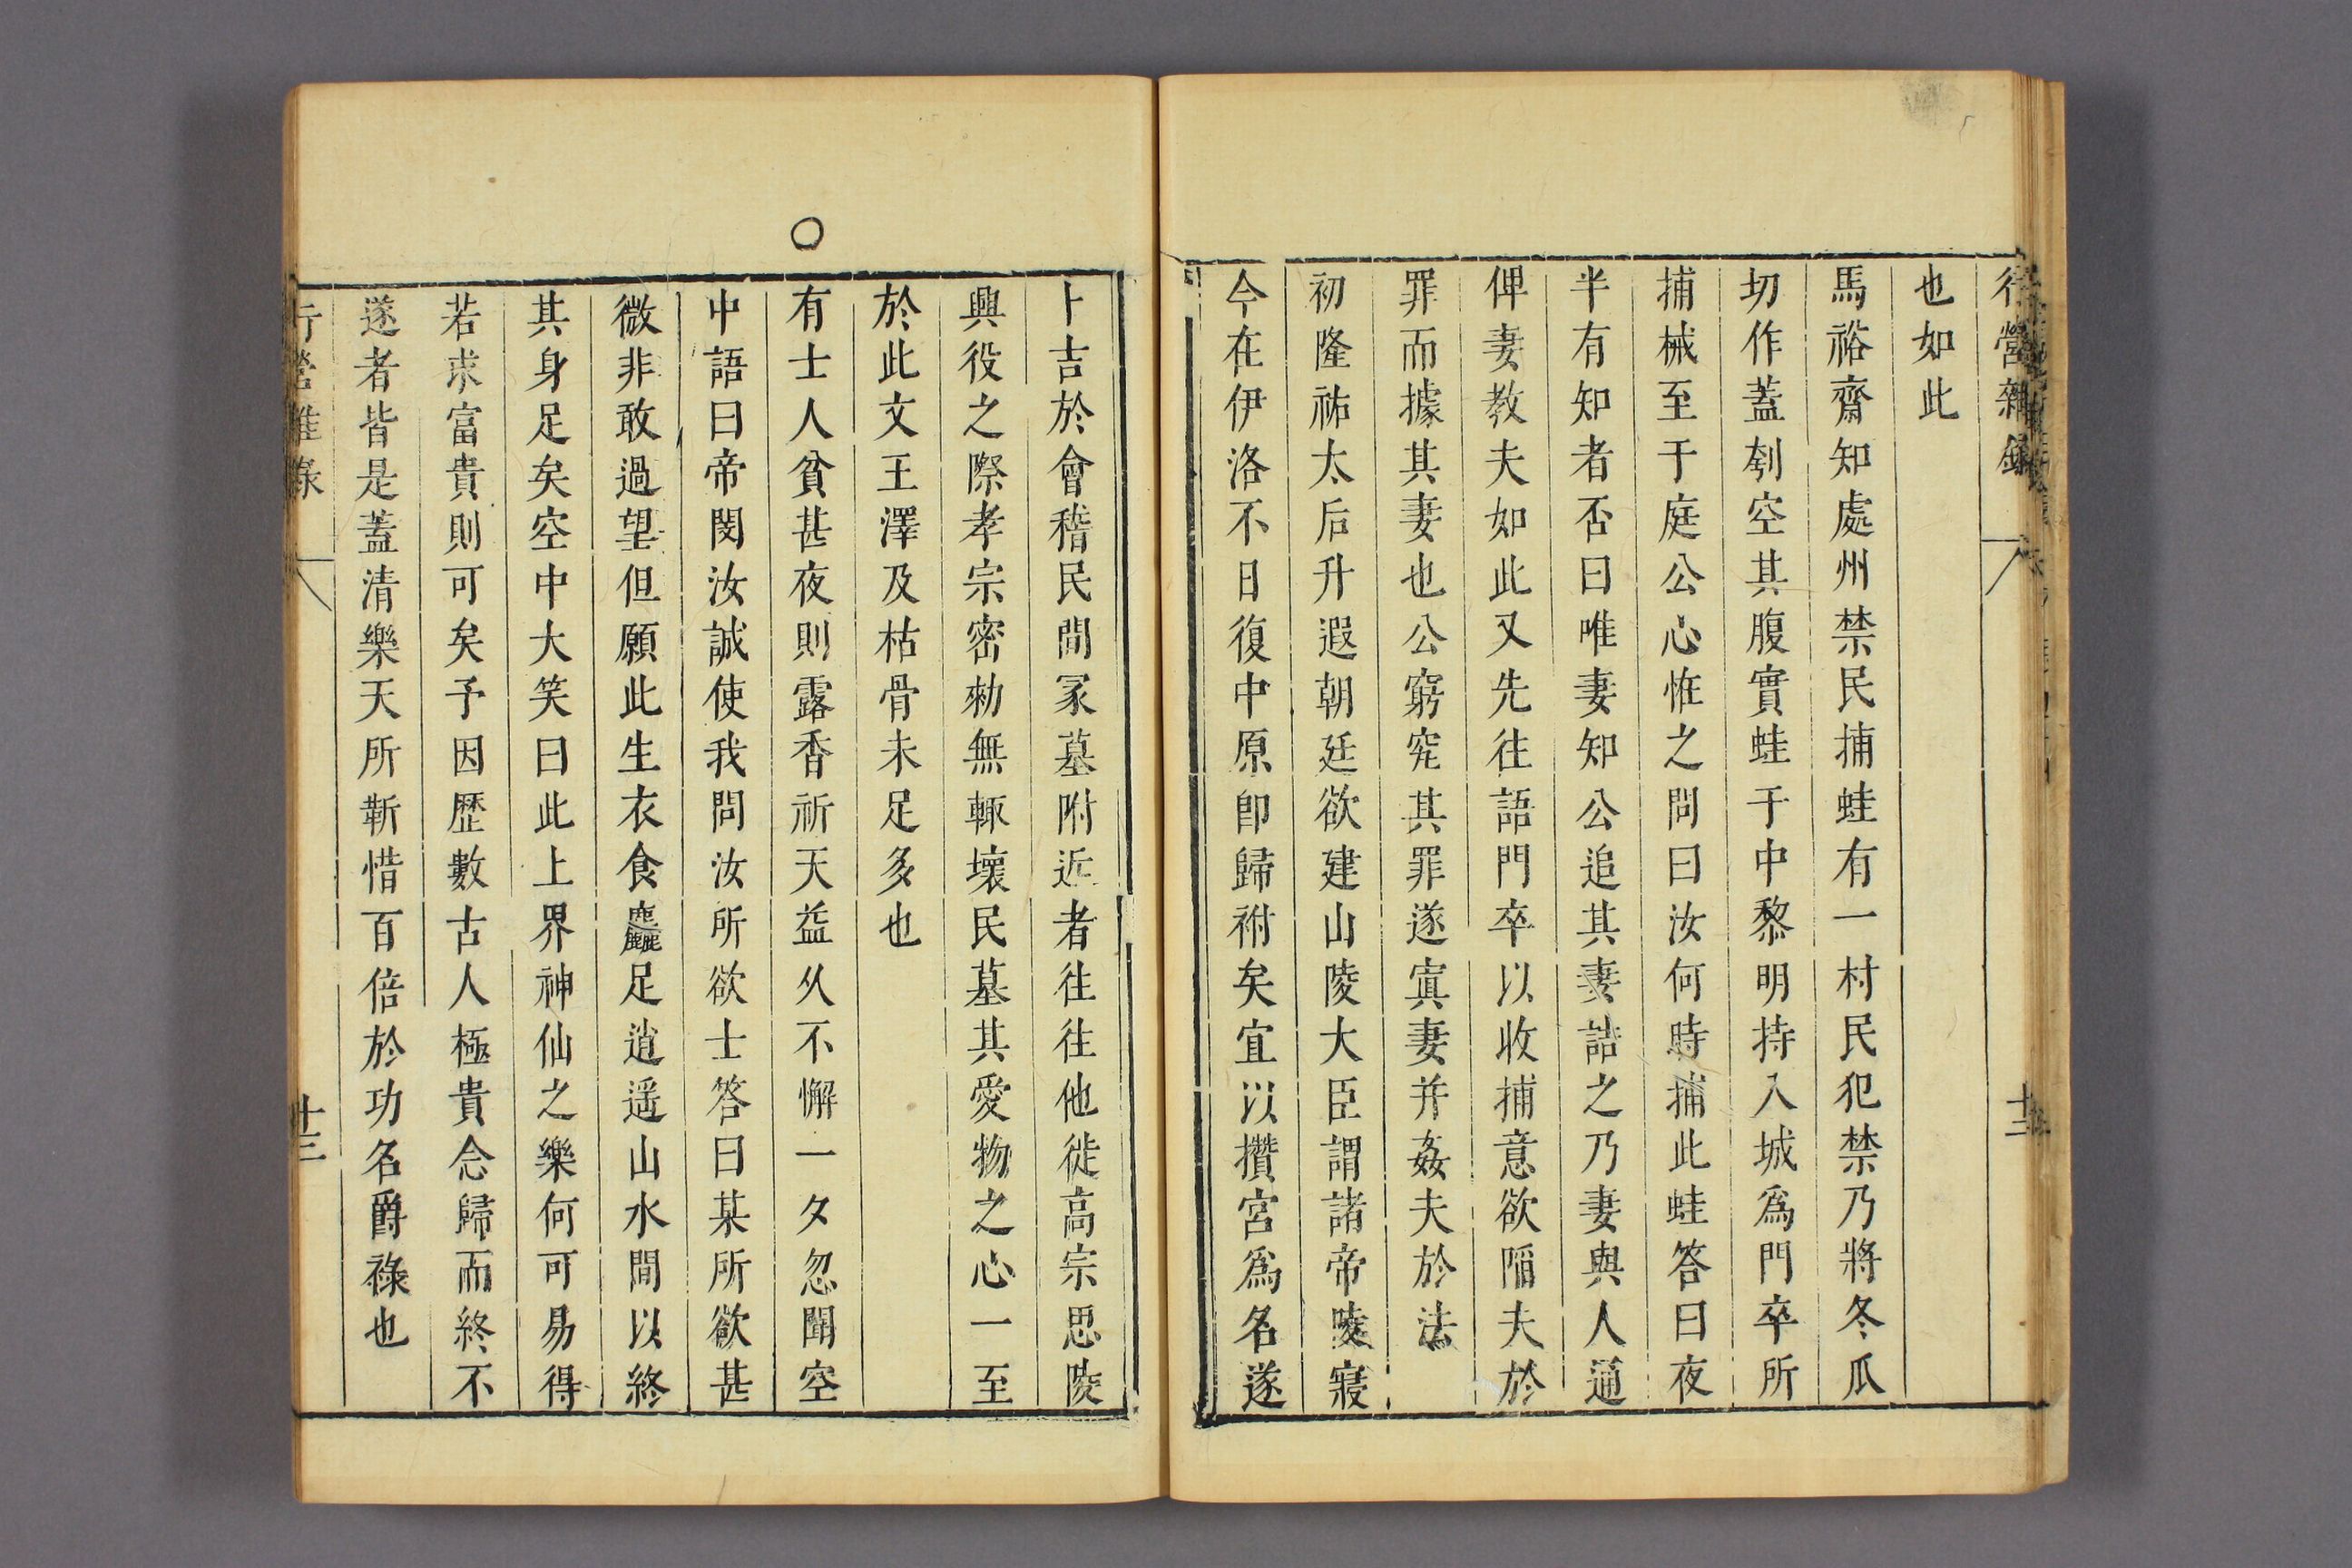 行營雜録
十二
也如此
馬裕齋知處州禁民捕蛙有一村民犯禁乃將冬瓜
切作蓋刳空其腹實蛙于中黎明持入城爲門卒所
捕械至于庭公心惟之問曰汝何時捕此蛙答曰夜
半有知者否曰唯妻知公追其妻詰之乃妻與人通
俾妻教夫如此又先往語門卒以收捕意欲陷夫於
罪而據其妻也公窮究其罪遂寘妻并姦夫於法
初隆祐太后升遐朝廷欲建山陵大臣謂諸帝陵寢
今在伊洛不日復中原即歸祔矣宜以攢宮爲名遂
卜吉於會稽民間冢墓附近者往往他徙高宗思陵
興役之際孝宗密勑無輒壞民墓其愛物之心一至
於此文王澤及枯骨未足多也
〇
有士人貧甚夜則露香祈天益久不懈一夕忽聞空
中語曰帝閔汝誠使我問汝所欲士答曰某所欲甚
微非敢過望但願此生衣食麤足逍遥山水間以終
其身足矣空中大笑曰此上界神仙之樂何可易得
若求富貴則可矣予因歷數古人極貴念歸而終不
遂者皆是蓋清樂天所靳惜百倍於功名爵祿也
行營雜録
十三